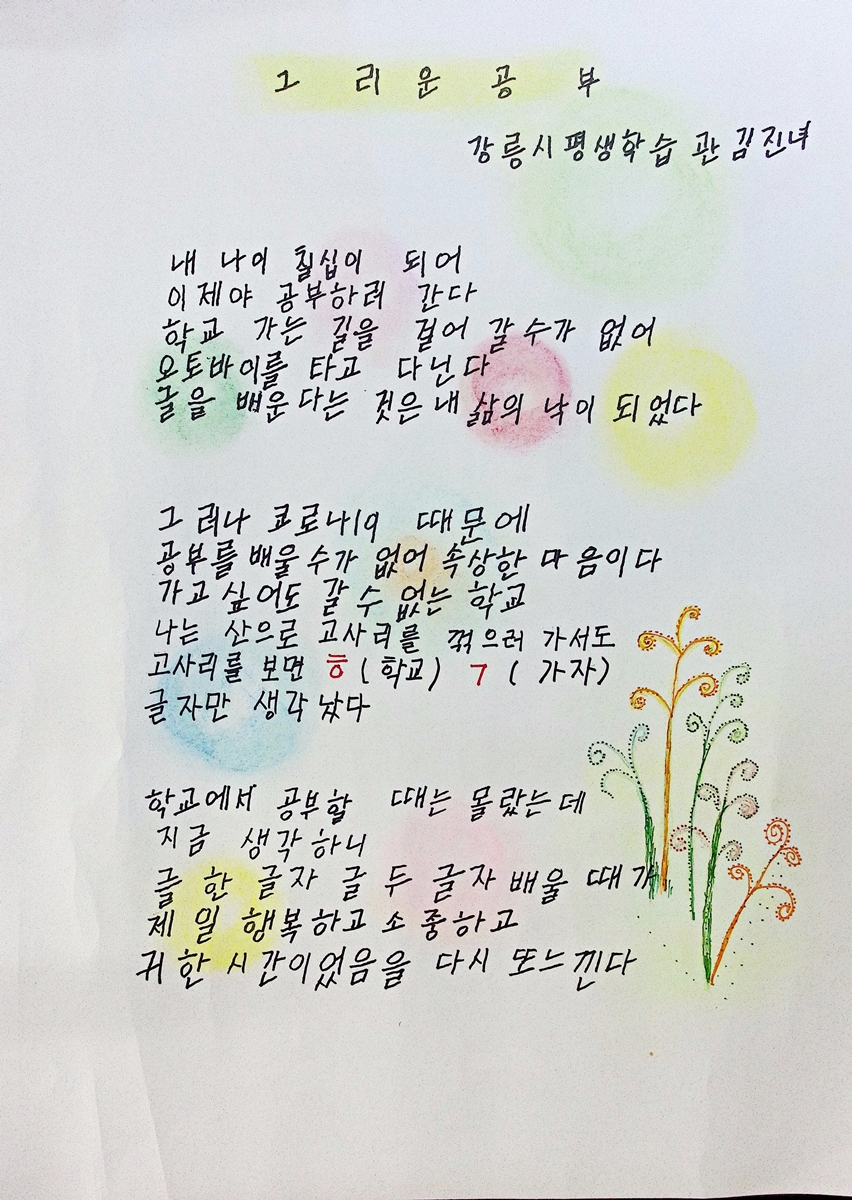 그리운 공부
강릉시평생학습관 김진녀
내 나이 칠십이 되어
이제야 공부하러 간다
학교 가는 길을 걸어 갈 수가 없어
오토바이를 타고 다닌다
글을 배운다는 것은 내 삶의 낙이 되었다
그러나 코로나19 때문에
공부를 배울 수가 없어 속상한 마음이다
가고 싶어도 갈 수 없는 학교
나는 산으로 고사리를 꺾으러 가서도
고사리를 보면 ㅎ(학교) ㄱ(가자)
글자만 생각났다
학교에서 공부할 때는 몰랐는데
지금 생각하니
글 한 글자 글 두 글자 배울 때가
제일 행복하고 소중하고
귀한 시간이었음을 다시 또 느낀다